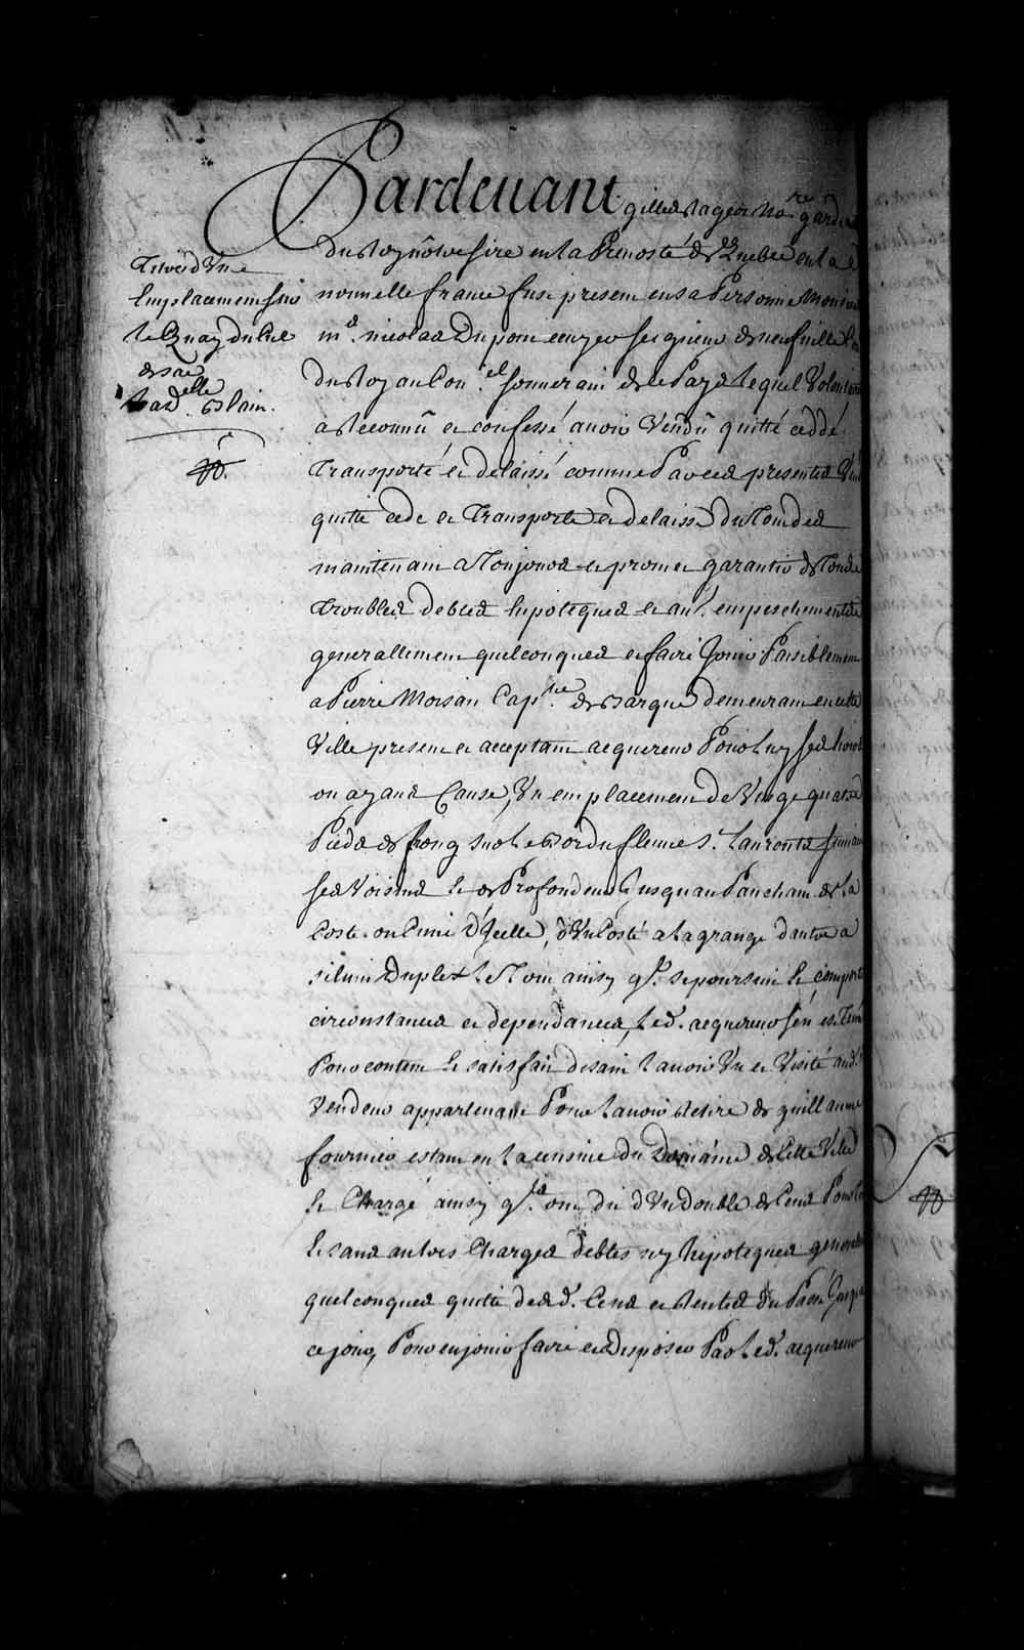 Pardevant gilles Rageot No.re garde
du Roy nôtre sire en la Prevosté de Quebec en la
nouvelle france fust present en sa Personne Monsieur
m.e nicolas Dupont escuyer seigneur de neufville
du Roy au Con.el souverain de ce Pays Lequel Volont
a Reconnû et confessé avoir Vendû quitté ceddé
Transporté et delaissé comme Par ces presentes Vend
quitte cede et Transporte et delaisse du Tout des
maintenant a Toujours et promet garantir de Tous
Troubles debtes hipoteques et au.t empeschements
generallement quelconques et faire Jouir Paisiblement
a Pierre Moisan Cap.ne de Barque demeurant en cette
Ville present et acceptant acquereur Pour Luy ses hoirs
ou ayans Cause, Un emplacement de Vingt quatre
Pieds de front sur Le Bord du fleuve S.t Laurent
ses Voisins Et de Profondeur Jusqu'au Panchant de La
Coste ou Cime d'Jcelle, d'Un Costé a Lagrange d'autre a
Duplex Le Tout ainsy q.l se poursuit Et comporte
circonstances et dependances, Led. acquereur s'en est Tenu
Pour content Et satisfait disant L'avoir Vu et Visité aud.
Vendeur appartenant Pour L'avoir Retiré de guillaume
fournier estant en La censive du Domaine de Cette Ville
Et Chargé ainsy q.ls ont dit d'Un double de Cens Pour
Et sans autres Charges debtes ny hipoteques general
quelconques quitte desd. Cens et Rentes du Passé Jusqu'a
ce jour, Pour en jouir faire et Disposer Par Led. acquereur
Emplacement sur
Le Quay du Cul
de sac